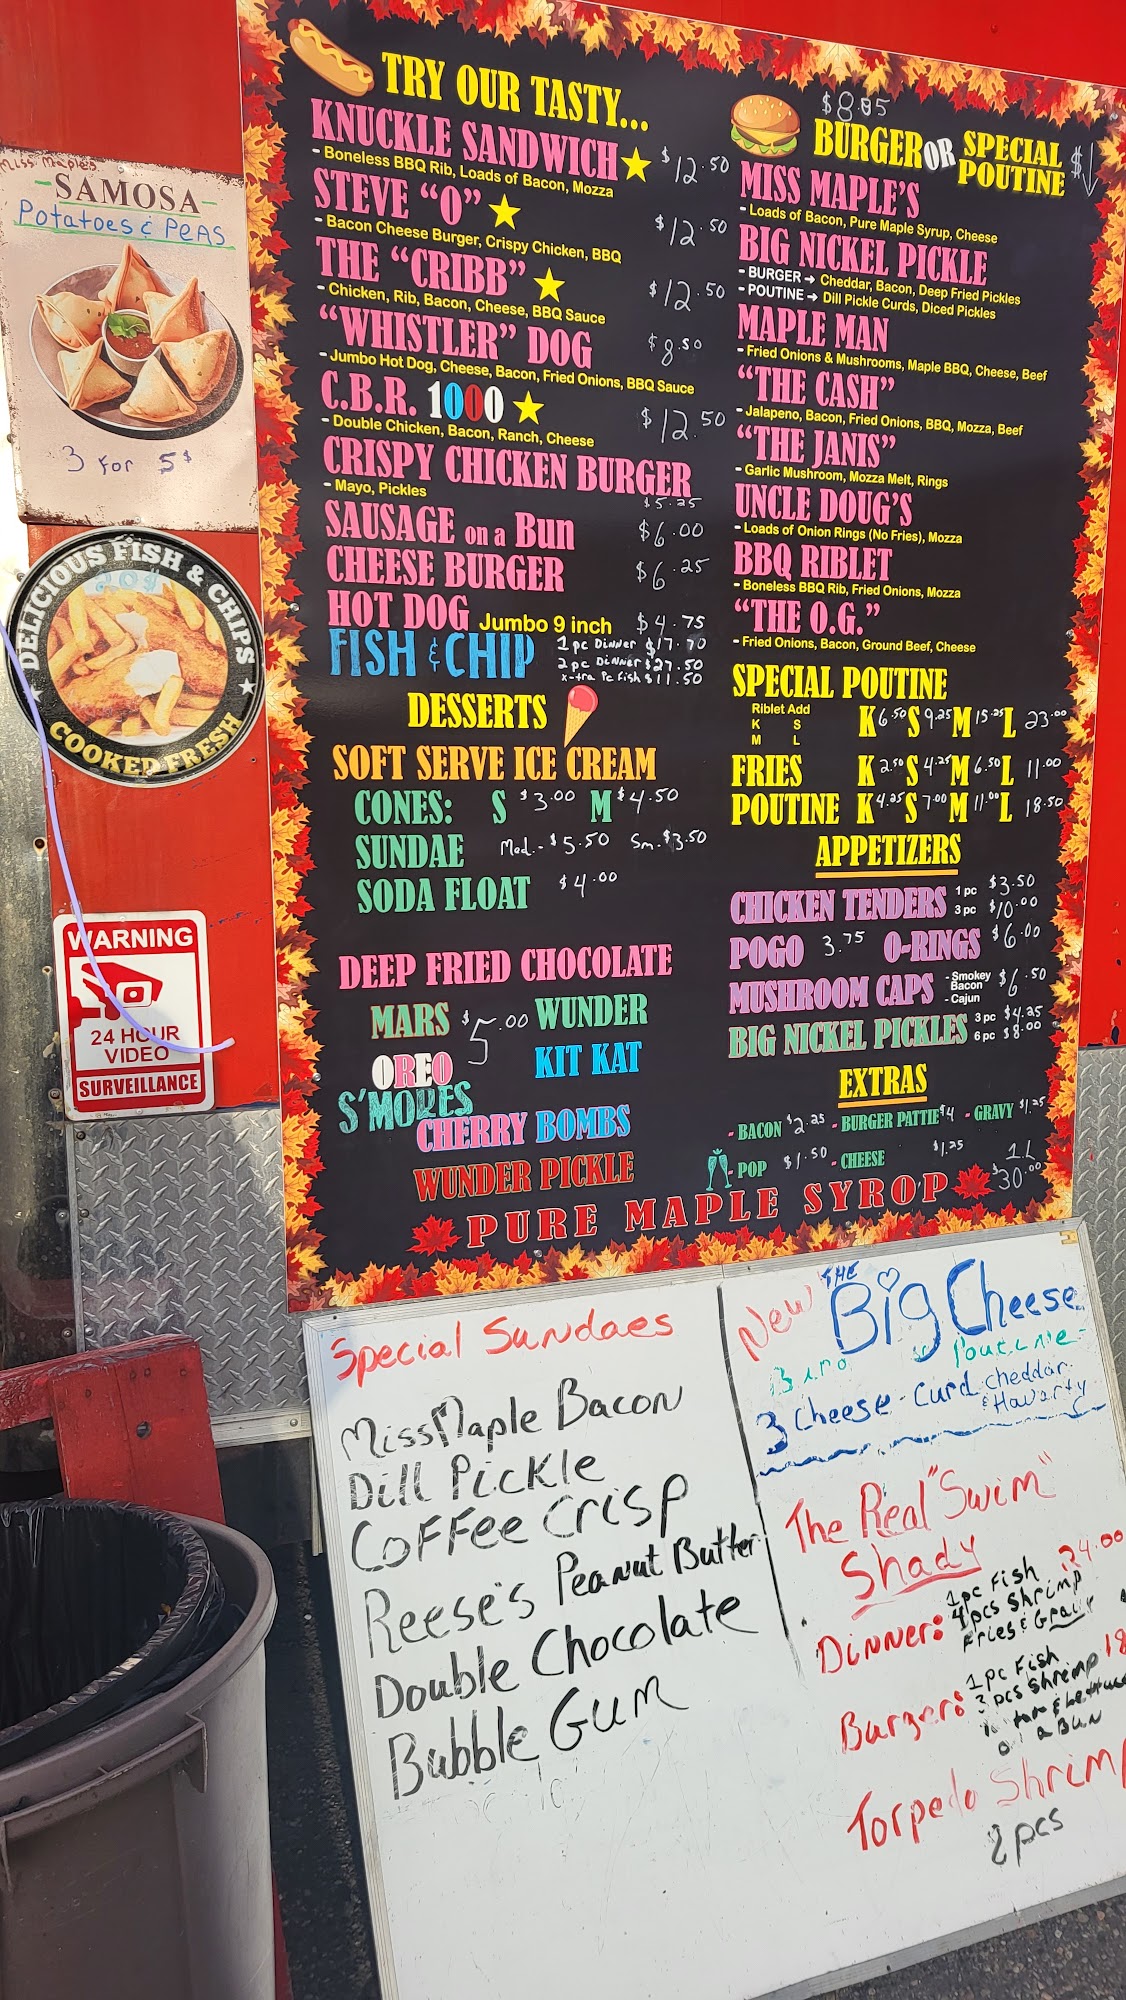 Miss Maple's
SAMOSA
Potatoes & PEAS
3 for 5$
DELICIOUS FISH & CHIPS
COOKED FRESH
WARNING
24 HOUR
VIDEO
SURVEILLANCE
TRY OUR TASTY...
KNUCKLE SANDWICH $12.50
- Boneless BBQ Rib, Loads of Bacon, Mozza
STEVE "O" $12.50
- Bacon Cheese Burger, Crispy Chicken, BBQ
THE "CRIBB" $12.50
- Chicken, Rib, Bacon, Cheese, BBQ Sauce
"WHISTLER" DOG $8.50
- Jumbo Hot Dog, Cheese, Bacon, Fried Onions, BBQ Sauce
C.B.R. 1000 $12.50
- Double Chicken, Bacon, Ranch, Cheese
CRISPY CHICKEN BURGER
- Mayo, Pickles
SAUSAGE on a Bun $6.00
CHEESE BURGER $6.25
HOT DOG Jumbo 9 inch $4.75
FISH & CHIP 1pc Dinner $17.70
2pc Dinner $27.50
x-tra Pc Fish $11.50
DESSERTS
SOFT SERVE ICE CREAM
CONES: S $3.00 M $4.50
SUNDAE Med.- $5.50 Sm.- $3.50
SODA FLOAT $4.00
DEEP FRIED CHOCOLATE
MARS $5.00 WUNDER
OREO KIT KAT
S'MORES
CHERRY BOMBS
WUNDER PICKLE
BURGER OR SPECIAL POUTINE $
MISS MAPLE'S
- Loads of Bacon, Pure Maple Syrup, Cheese
BIG NICKEL PICKLE
- BURGER → Cheddar, Bacon, Deep Fried Pickles
- POUTINE → Dill Pickle Curds, Diced Pickles
MAPLE MAN
- Fried Onions & Mushrooms, Maple BBQ, Cheese, Beef
"THE CASH"
- Jalapeno, Bacon, Fried Onions, BBQ, Mozza, Beef
"THE JANIS"
- Garlic Mushroom, Mozza Melt, Rings
UNCLE DOUG'S
- Loads of Onion Rings (No Fries), Mozza
BBQ RIBLET
- Boneless BBQ Rib, Fried Onions, Mozza
"THE O.G."
- Fried Onions, Bacon, Ground Beef, Cheese
SPECIAL POUTINE
Riblet Add
K S
M L
K 6.50 S 9.25 M 15.25 L 23.00
FRIES K 2.50 S 4.25 M 6.50 L 11.00
POUTINE K 4.25 S 7.00 M 11.00 L 18.50
APPETIZERS
CHICKEN TENDERS 1 pc $3.50
3 pc $10.00
POGO 3.75 O-RINGS $6.00
MUSHROOM CAPS - Smokey Bacon $6.50
- Cajun
BIG NICKEL PICKLES 3 pc $4.25
6 pc $8.00
EXTRAS
- BACON $2.25 - BURGER PATTIE $4 - GRAVY $1.25
- POP $1.50 - CHEESE $1.25
PURE MAPLE SYROP 1L $30.00
Special Sundaes
Miss Maple Bacon
Dill Pickle
Coffee Crisp
Reese's Peanut Butter
Double Chocolate
Bubble Gum
New THE
Big Cheese
Poutine
3 Cheese - Curd cheddar
& Havarty
The Real "Swim"
Shady
24.00
Dinner: 1pc Fish
4pcs Shrimp
Fries & Gravy
Burger: 1pc Fish
3 pcs Shrimp 18
a Bun
Torpedo Shrimp